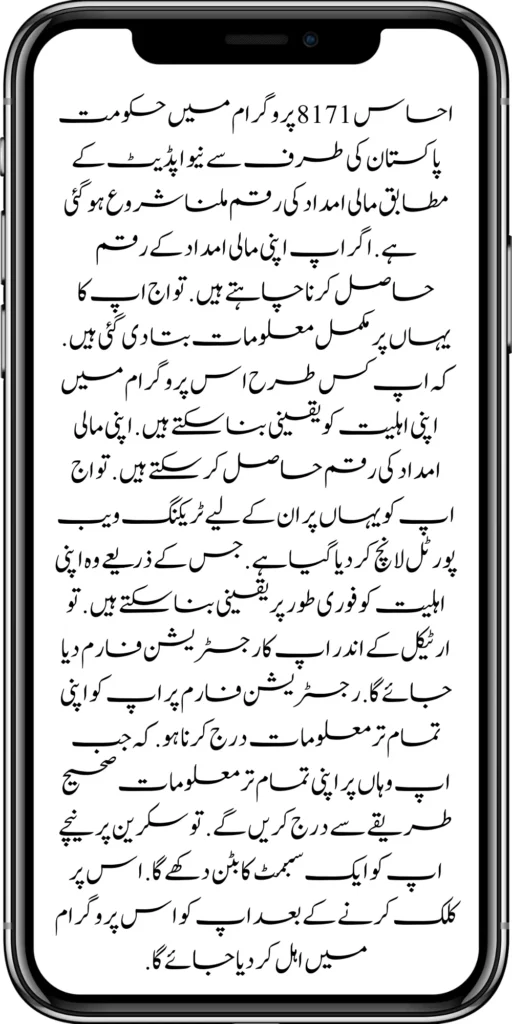 احساس 8171 پروگرام میں حکومت
پاکستان کی طرف سے نیو اپڈیٹ کے
مطابق مالی امداد کی رقم ملنا شروع ہو گئی
ہے. اگر اپ اپنی مالی امداد کے رقم
حاصل کرنا چاہتے ہیں. تو اج اپ کا
یہاں پر مکمل معلومات بتا دی گئی ہیں.
کہ اپ کس طرح اس پروگرام میں
اپنی اہلیت کو یقینی بنا سکتے ہیں. اپنی مالی
امداد کی رقم حاصل کر سکتے ہیں. تو اج
اپ کو یہاں پر ان کے لیے ٹریکنگ ویب
پورٹل لانچ کر دیا گیا ہے. جس کے ذریعے وہ اپنی
اہلیت کو فوری طور پر یقینی بنا سکتے ہیں. تو
ارٹیکل کے اندر اپ کا رجسٹریشن فارم دیا
جائے گا. رجسٹریشن فارم پر اپ کو اپنی
تمام تر معلومات درج کرنا ہو. کہ جب
اپ وہاں پر اپنی تمام تر معلومات صحیح
طریقے سے درج کریں گے. تو سکرین پر نیچے
اپ کو ایک سبمٹ کا بٹن دکھے گا. اس پر
کلک کرنے کے بعد اپ کو اس پروگرام
میں اہل کر دیا جائے گا.